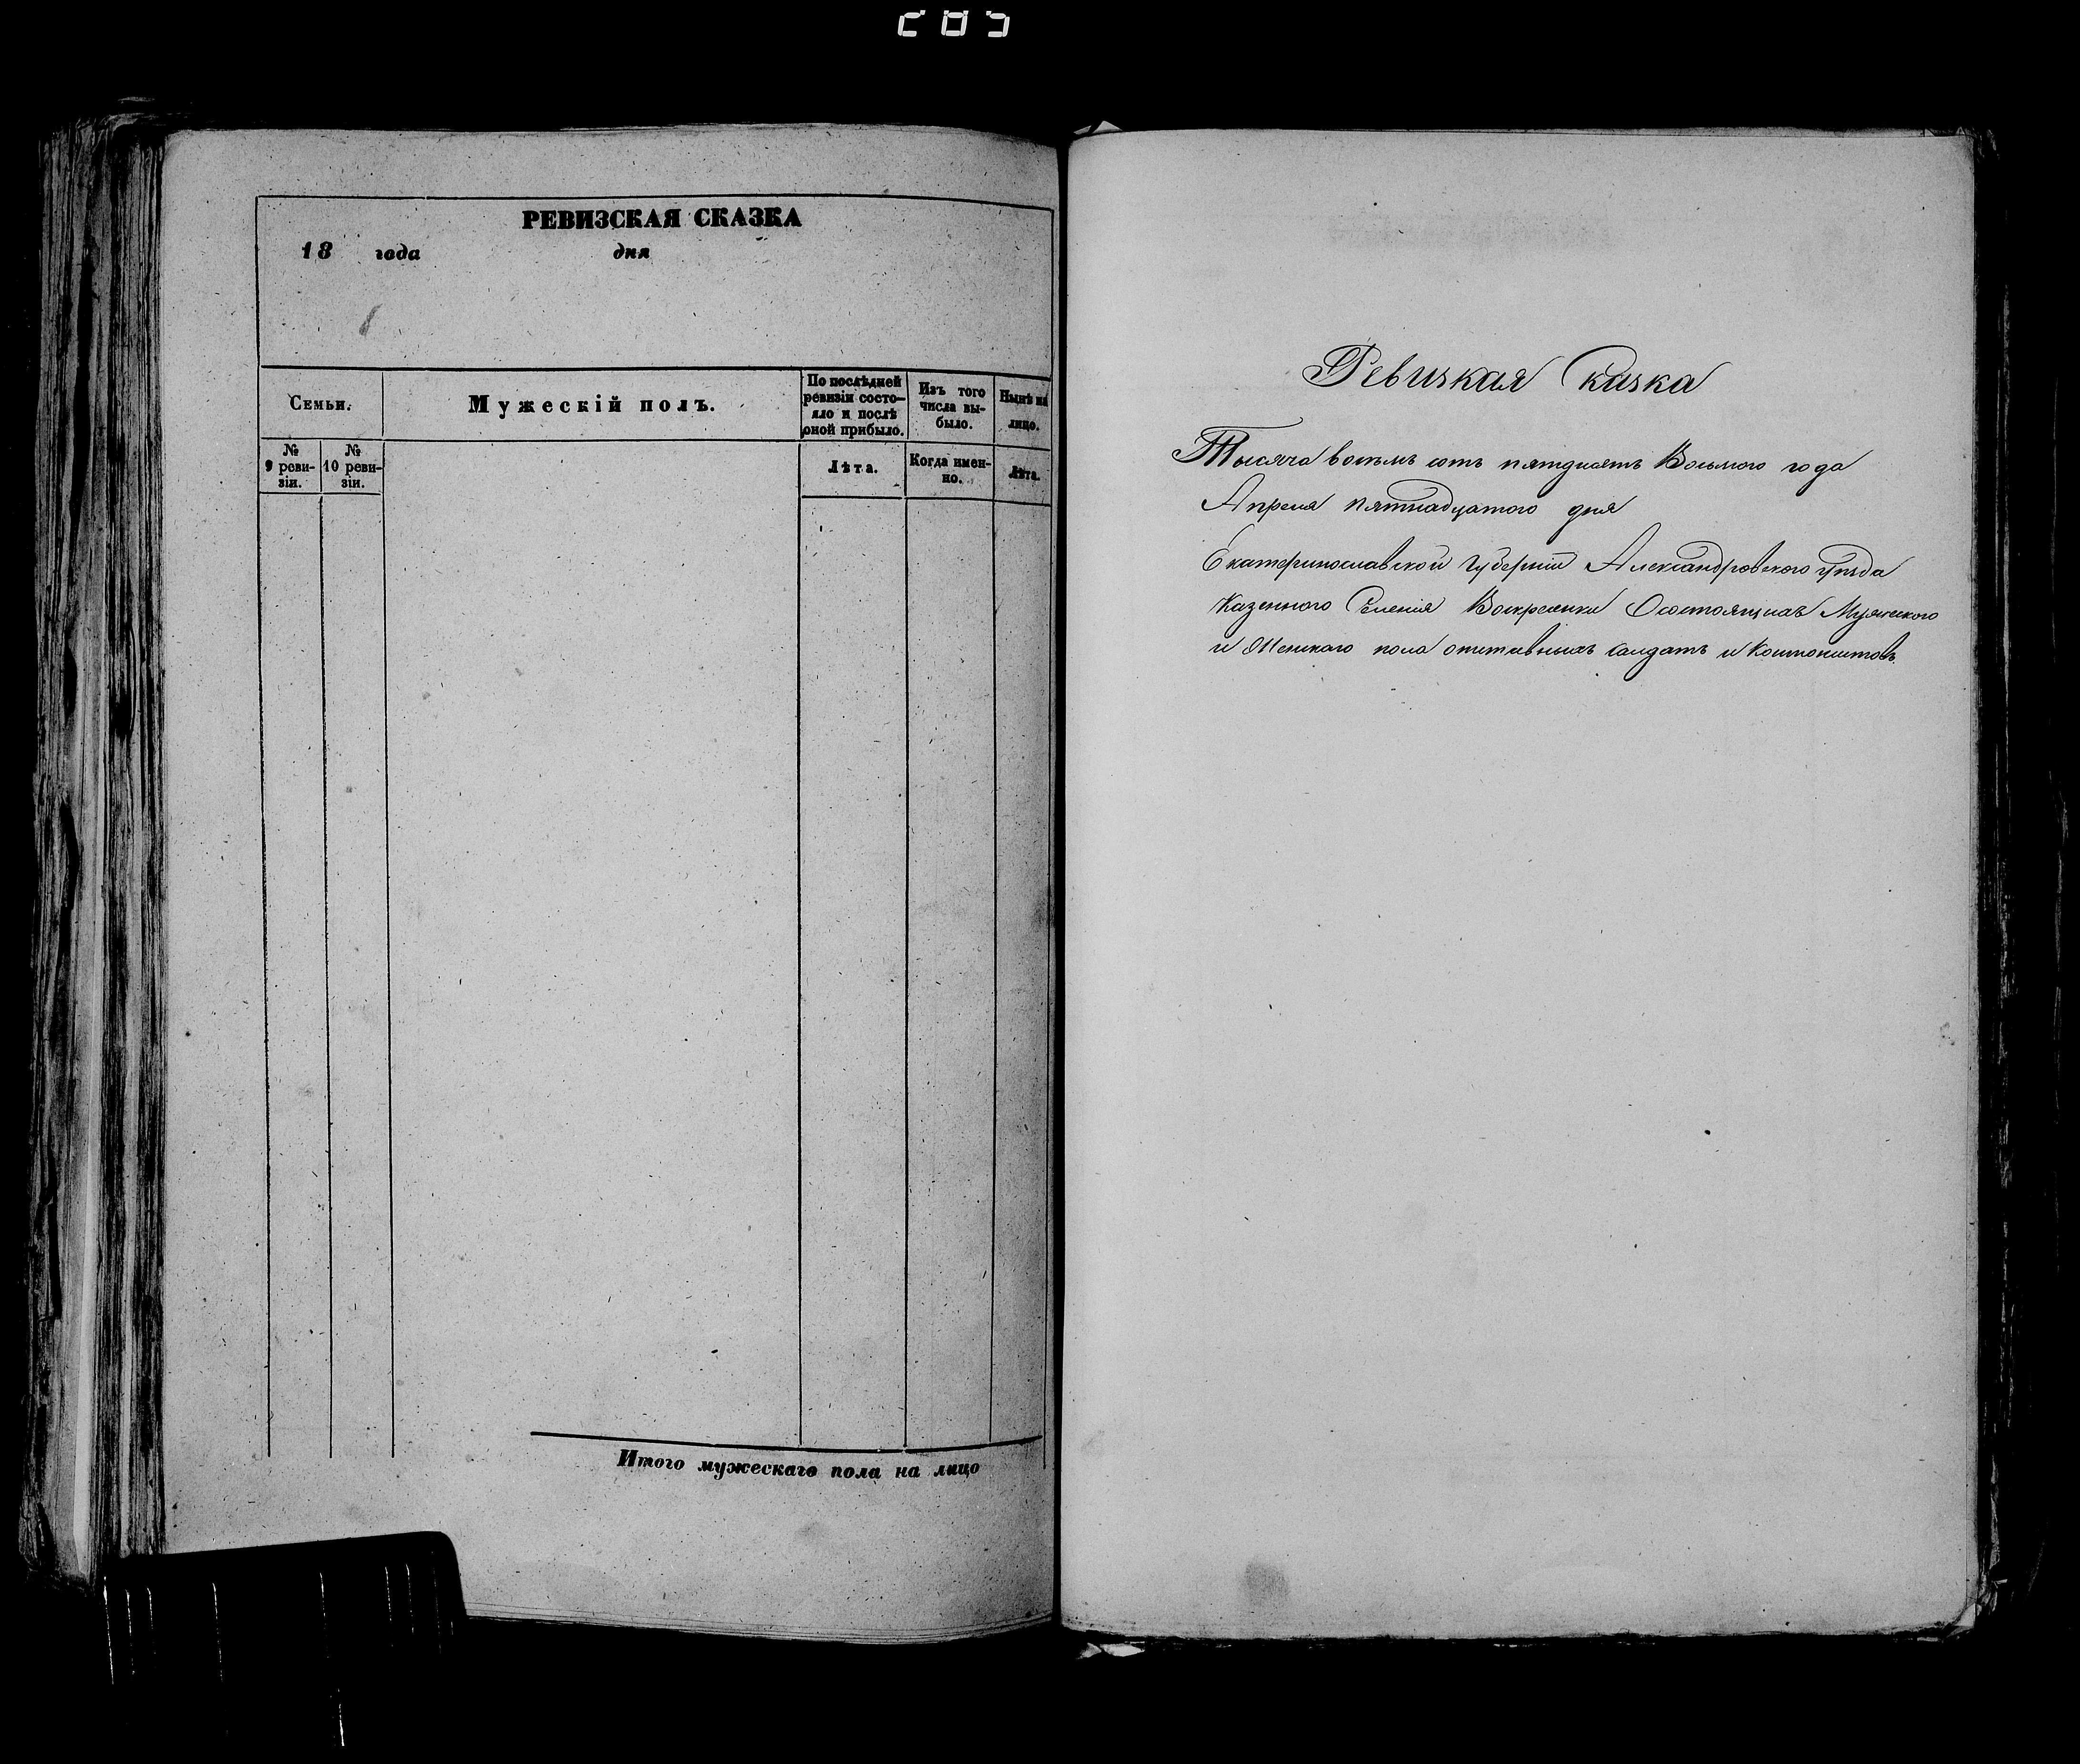 205
РЕВИЗСКАЯ СКАЗКА
18 года дня
Семьи.
Мужескій полъ.
По послѣдней ревизіи состо-
яло и послѣ
оной прибыло.
Изъ того
числа вы-
было.
Нынѣ на
лицо.
№
9 реви-
зіи.
№
10 реви-
зіи.
Лѣта.
Когда имен-
но.
Лѣта.
Итого мужескаго пола на лицо
Ревизкая Сказка
Тысяча восемь сотъ пятдисятъ Восьмого года
Апреля пятнадцатого дня
Екатеринославской губерніи Александровского уѣзда
Казенного Селенія Воскресенки Состоящихъ Мужеского
и Женскаго пола отставныхъ салдатъ и Контонистовъ